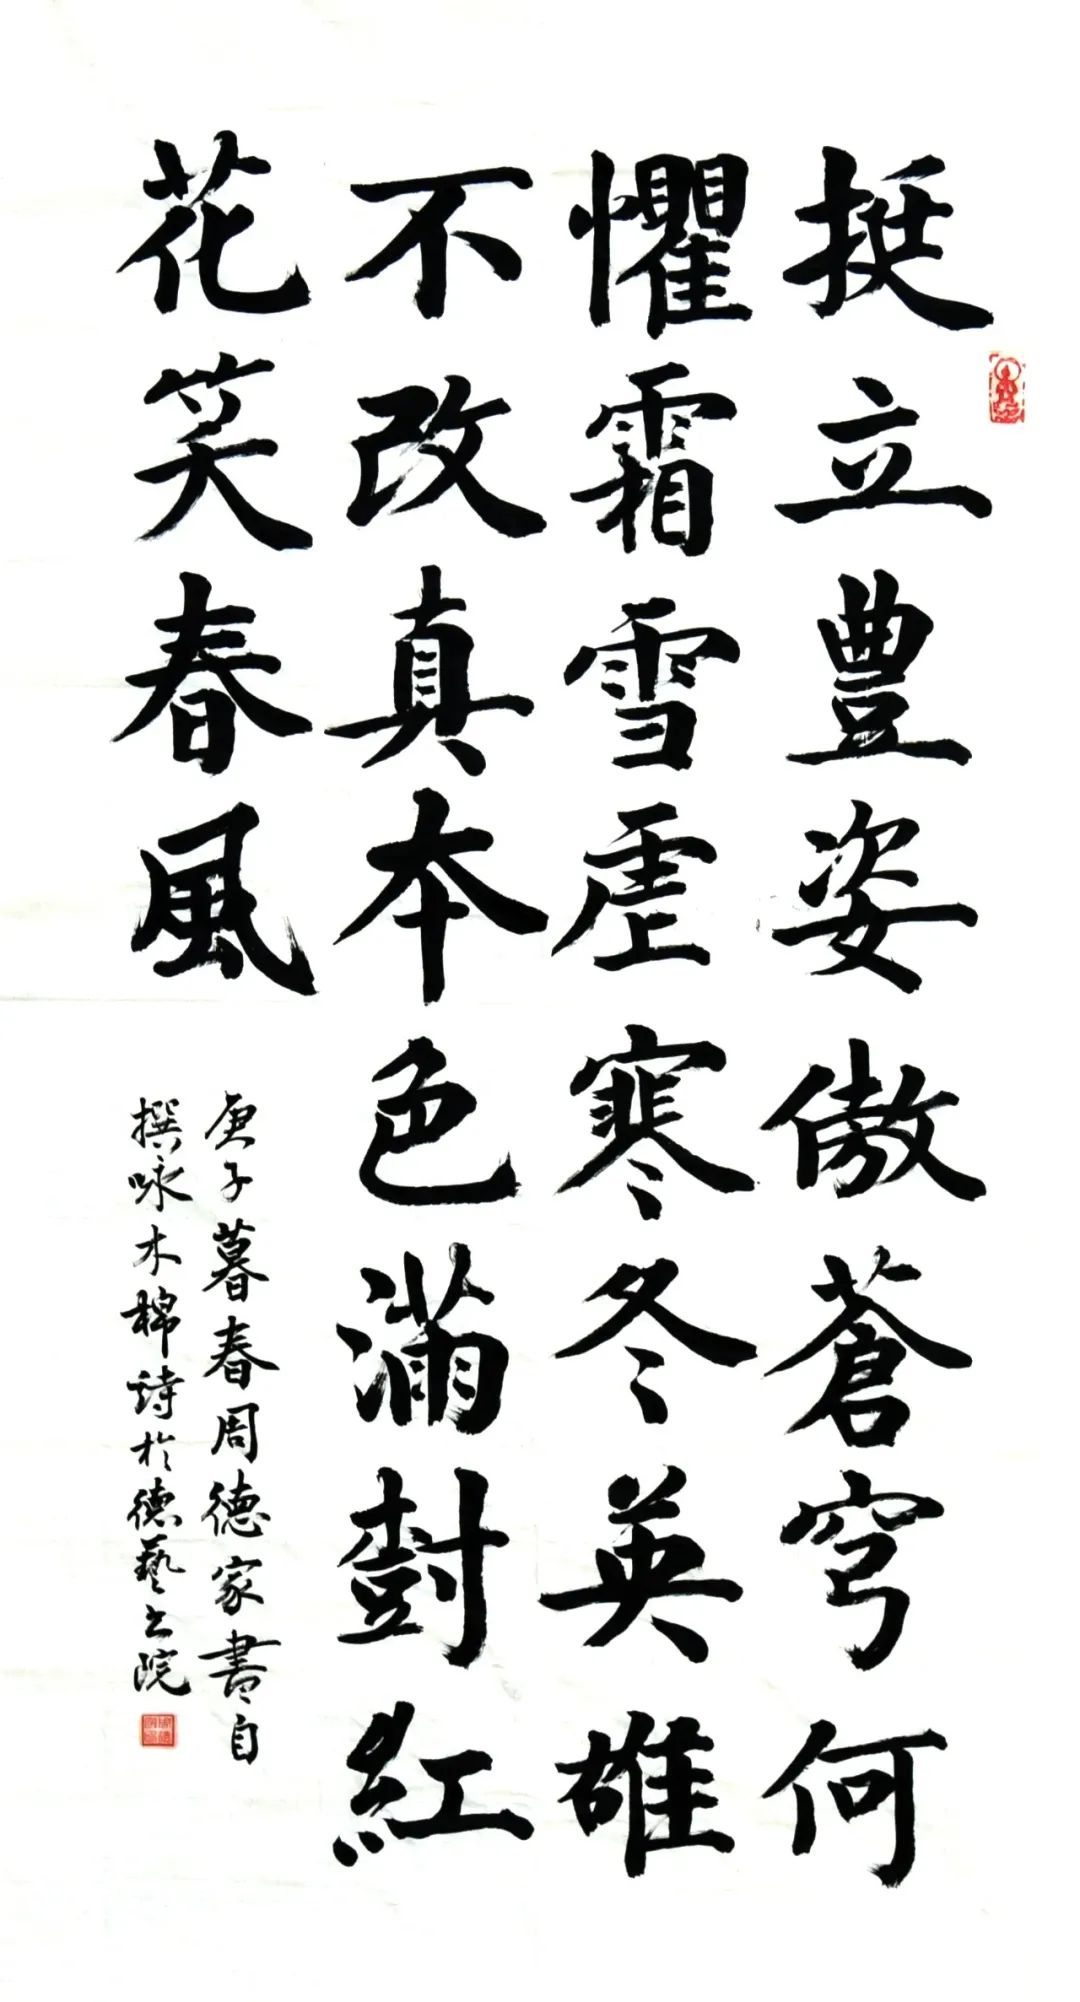 挺立豊姿傲蒼穹何
懼霜雪虐寒冬英雄
不改真本色滿樹紅
花笑春風
庚子暮春周德家書自
撰咏木棉詩於德藝书院